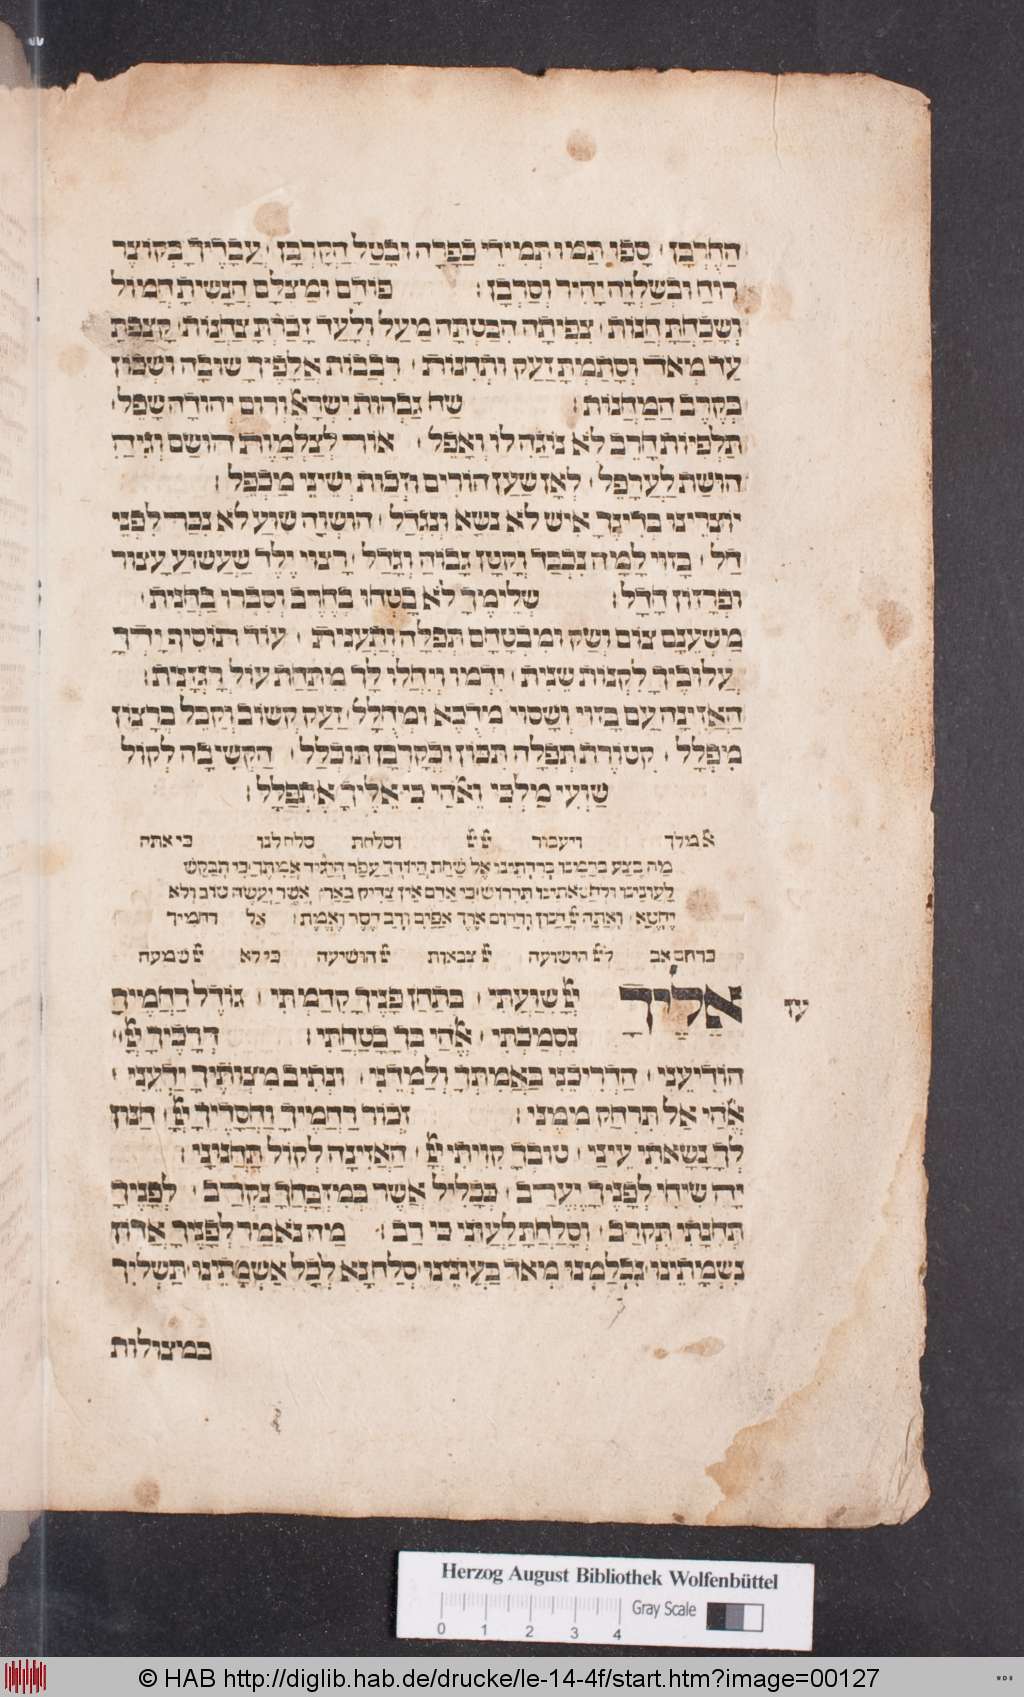 הַחֻרְבָּן סָפוּ תַמּוּ תְּמִידֵי כַפָּרָה וּבָטַל הַקָּרְבָּן עֲבָדֶיךָ בְּקוֹצֶר
רוּחַ וּבְשַׁלְוָה יָהִיר וְסַרְבָן: פּוֹרָם וּמִצְלָם הֲנָשִׁיתָ הֲמוֹל
וְשָׁכַחְתָּ חֲנוֹת צְפִיתָה הִבַּטְתָּה מֵעַל וְלָעַד זָכַרְתָּ צַחֲנוֹת קָצַפְתָּ
עַד מְאֹד וְסָתַמְתָּ זַעַק וּתְחִנּוֹת רִבֲבוֹת אֲלָפֶיךָ שׁוּבָה וּשְׁכוֹן
בְּקֶרֶב הַמַּחֲנוֹת: שַׁח גַּבְהוּת יִשְׂרָאֵל וְרוּם יְהוּדָה שָׁפָל
תַּלְפִּיוֹת חָרֵב לֹא נוֹגַהּ לוֹ וְאָפֵל אוֹר לְצַלְמָוֶת הוּשַׂם וְגִיהַּ
הוּשַׁת לַעֲרָפֶל לְאָן שַׁעַן הוֹרִים וּזְכוּת יְשֵׁינֵי מַכְפֵּל:
יוֹצְרֵינוּ בְּדִינְךָ אִישׁ לֹא נִשָּׂא וְנִגְדַּל הוּשְׁוָה שׁוֹעַ לֹא נִכַּר לִפְנֵי
דָל בָּזוּי לָמָּה נִכְבַּד וְקָטָן גָּבוֹהַּ וְגָדַל רָצוּי יֶלֶד שַׁעֲשׁוּעַ עָצוּר
וּפְרָזוֹן חָדָל: שְׁלֵימֶיךָ לֹא בָטְחוּ בְּחֶרֶב וְסִבְּרוּ בַּחֲנִית
מִשְׁעָנָם צוֹם וְשַׂק וּמִבְטָחָם תְּפִלָּה וְתַעֲנִית עוֹד תּוֹסִיף יָדְךָ
עֲלוּבֶיךָ לִקְנוֹת שֵׁנִית יִדְּמוּ וְיִחֲלוּ לָךְ מִתַּחַת עוֹל רָגְזָנִית:
הַאֲזִינָה עַם בָּזוּי וְשָׁסוּי מְדֻכָּא וּמְחֻלָּל זַעַק קְשׁוֹב וְקַבֵּל בְּרָצוֹן
מִפְלָל קְטוֹרֶת תְּפִלָּה תִכּוֹן וּבְקָרְבָּן תּוּכְלַל הַקְשִׁיבָה לְקוֹל
שַׁוְעִי מַלְכִּי וֵאלֹהַי כִּי אֵלֶיךָ אֶתְפַּלָּל:
אל מלך ויעבור יי יי וסלחת סלח לנו כי אתה
מַה בֶּצַע בְּדָמֵנוּ בְּרִדְתֵּינוּ אֶל שָׁחַת הֲיוֹדְךָ עָפָר הֲיַגִּיד אֲמִתֶּךָ כִּי תְבַקֵּשׁ
לַעֲוֹנֵינוּ וּלְחַטֹּאתֵינוּ תִדְרוֹשׁ כִּי אָדָם אֵין צַדִּיק בָּאָרֶץ אֲשֶׁר יַעֲשֶׂה טוֹב וְלֹא
יֶחֱטָא וְאַתָּה יְיָ רַחוּם וְחַנּוּן אֶרֶךְ אַפַּיִם וְרַב חֶסֶד וֶאֱמֶת אל רחמיך
כרחם אב ליי הישועה יי צבאות יי הושיעה כי לא יי שמעה
עז
אֵלֶיךָ יְיָ שִׁוַּעְתִּי בְּתַחַן פָּנֶיךָ קִדַּמְתִּי גּוֹדֶל רַחֲמֶיךָ
נִסְמַכְתִּי אֱלֹהַי בְּךָ בָטַחְתִּי: דְּרָכֶיךָ יְיָ
הוֹדִיעֵנִי הַדְרִיכֵנִי בַאֲמִתֶּךָ וְלַמְּדֵנִי וּנְתִיב מִצְוֹתֶיךָ יַדְּעֵנִי
אֱלֹהַי אַל תִּרְחַק מִמֶּנִּי: זְכוֹר רַחֲמֶיךָ וַחֲסָדֶיךָ יְיָ חַנּוּן
לְךָ נָשָׂאתִי עֵינַי טוּבְךָ קִוִּיתִי יְיָ הַאֲזִינָה לְקוֹל תַּחֲנוּנָי:
יָהּ שִׂיחִי לְפָנֶיךָ יֶעֱרַב כְּכָלִיל אֲשֶׁר בְּמִזְבַּחֲךָ נִקְרַב לְפָנֶיךָ
תְּחִנָּתִי תִקְרַב וְסָלַחְתָּ לַעֲוֹנִי כִּי רַב: מַה נֹּאמַר לְפָנֶיךָ אָדוֹן
נֶאְשַׁמְנוּ נִכְלַמְנוּ מְאֹד בַּעֲוֹנֵינוּ סְלַח נָא לְכָל אַשְׁמָתֵינוּ תַּשְׁלִיךְ
במצולות
Herzog August Bibliothek Wolfenbüttel
Gray Scale
0 1 2 3 4
© HAB http://diglib.hab.de/drucke/le-14-4f/start.htm?image=00127